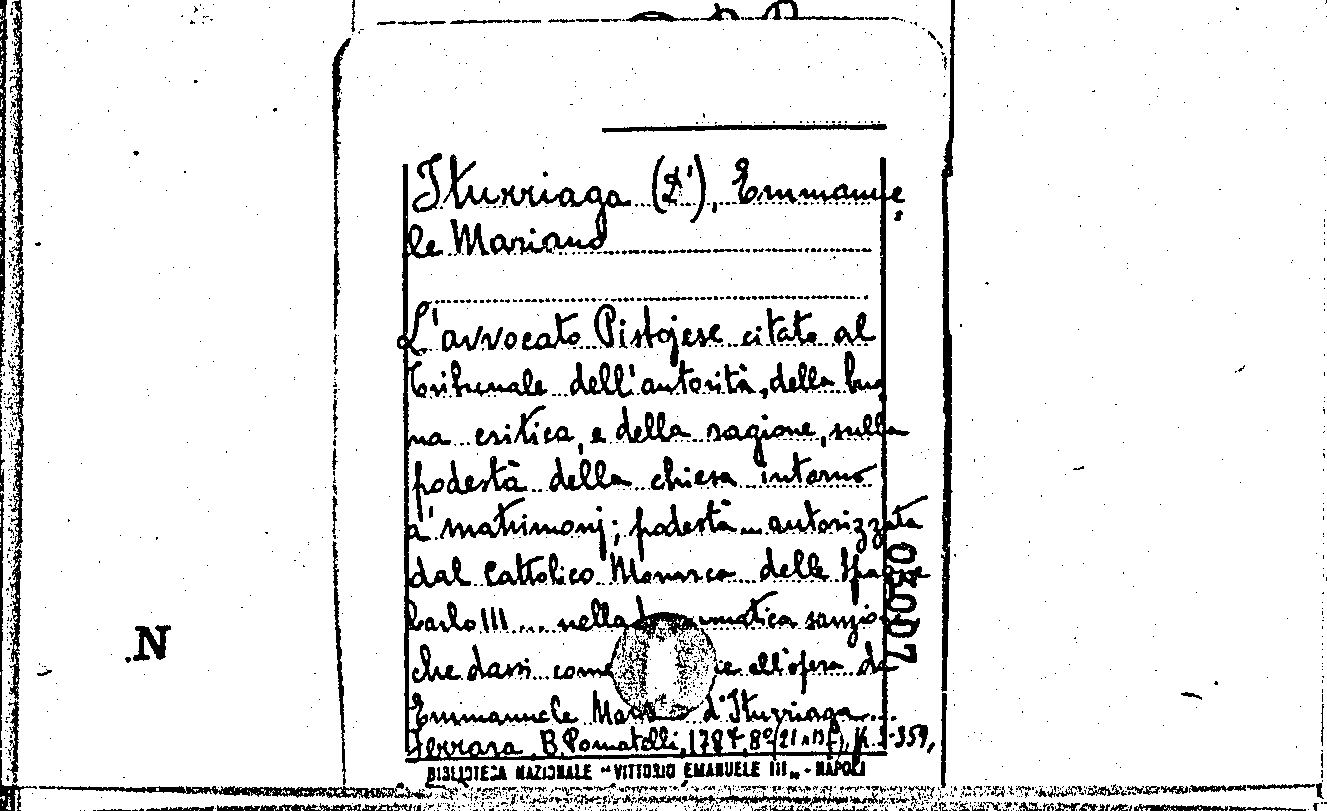 Iturriaga (D'), Emmanue
le Mariano
L'avvocato Pistojese citato al
Tribunale dell'autorità, della buo
na critica, e della ragione, sulla
podestà della chiesa intorno
a' matrimonj; podestà... autorizzata
dal Cattolico Monarca delle Spagne
Carlo III ... nella sanzio
che dassi come all'opera di
Emmanuele d'Iturriaga...
Ferrara, B. Pomatelli, 1787, 8º
03007
.N
BIBLIOTECA NAZIONALE "VITTORIO EMANUELE III" - NAPOLI